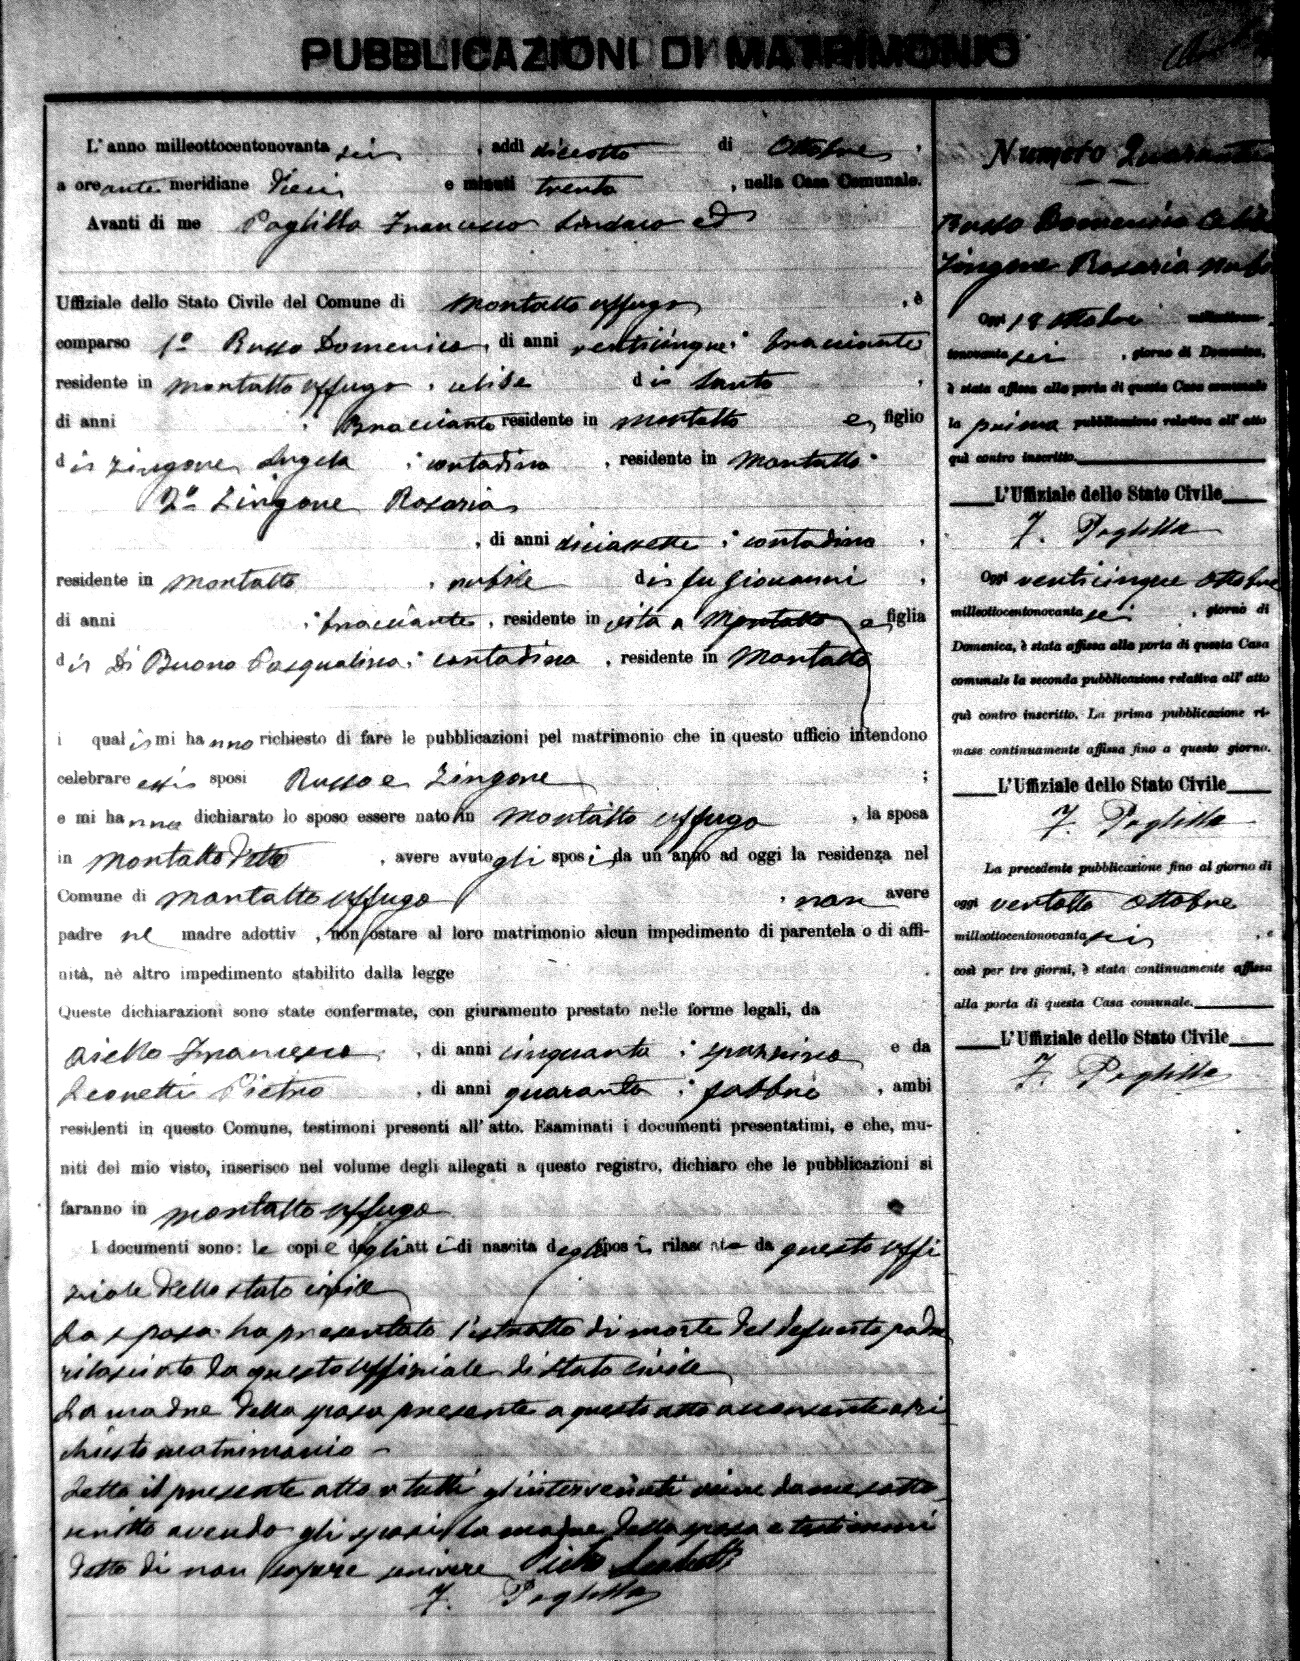 PUBBLICAZIONI DI MATRIMONIO
L'anno milleottocentonovanta sei, addì diciotto di Ottobre,
a ore ante meridiane dieci e minuti trenta, nella Casa Comunale.
Avanti di me Paglilla Francesco Sindaco ed
Uffiziale dello Stato Civile del Comune di Montalto Uffugo, è
comparso 1º Russo Domenico, di anni venticinque; bracciante
residente in Montalto Uffugo, celibe di Santo,
di anni ; Bracciante residente in Montalto e figlio
di Zingone Angela; contadina, residente in Montalto
2º Zingone Rosaria
, di anni diciassette; contadina,
residente in Montalto, nubile di fu Giovanni,
di anni ; bracciante, residente in vita a Montalto e figlia
di Di Buono Pasqualina; contadina, residente in Montalto
i quali mi hanno richiesto di fare le pubblicazioni pel matrimonio che in questo ufficio intendono
celebrare essi sposi Russo e Zingone;
e mi hanno dichiarato lo sposo essere nato in Montalto Uffugo, la sposa
in Montalto detto, avere avuto gli sposi da un anno ad oggi la residenza nel
Comune di Montalto Uffugo; non avere
padre ne madre adottiv, non ostare al loro matrimonio alcun impedimento di parentela o di affi-
nità, nè altro impedimento stabilito dalla legge.
Queste dichiarazioni sono state confermate, con giuramento prestato nelle forme legali, da
Aiello Francesco, di anni cinquanta; spazzino e da
Leonetti Pietro, di anni quaranta; fabbro, ambi
residenti in questo Comune, testimoni presenti all'atto. Esaminati i documenti presentatimi, e che, mu-
niti del mio visto, inserisco nel volume degli allegati a questo registro, dichiaro che le pubblicazioni si
faranno in Montalto Uffugo
I documenti sono: le copie degli atti di nascita degli sposi rilasciate da questo Uffi
ziale dello stato civile
La sposa ha presentato l'estratto di morte del defunto padre
rilasciato da questo Uffiziale di stato civile
La madre della sposa presente a questo atto acconsente al ri
chiesto matrimonio -
Letto il presente atto a tutti gl'intervenuti viene da me sotto
scritto avendo gli sposi la madre della sposa e testimoni
detto di non sapere scrivere Pietro
F. Paglilla
Numero
Russo Domenico Celibe
Zingone Rosaria nubile
Oggi 18 ottobre
sei, giorno di Domenica,
è stata affissa alla porta di questa Casa comunale
la prima pubblicazione relativa all'atto
quì contro inscritto.
L'Uffiziale dello Stato Civile
F. Paglilla
Oggi venticinque Ottobre
milleottocentonovanta sei, giorno di
Domenica, è stata affissa alla porta di questa Casa
comunale la seconda pubblicazione relativa all'atto
quì contro inscritto. La prima pubblicazione ri-
mase continuamente affissa fino a questo giorno.
L'Uffiziale dello Stato Civile
F. Paglilla
La precedente pubblicazione fino al giorno di
oggi ventotto Ottobre
milleottocentonovanta sei, e
così per tre giorni, è stata continuamente affissa
alla porta di questa Casa comunale.
L'Uffiziale dello Stato Civile
F. Paglilla